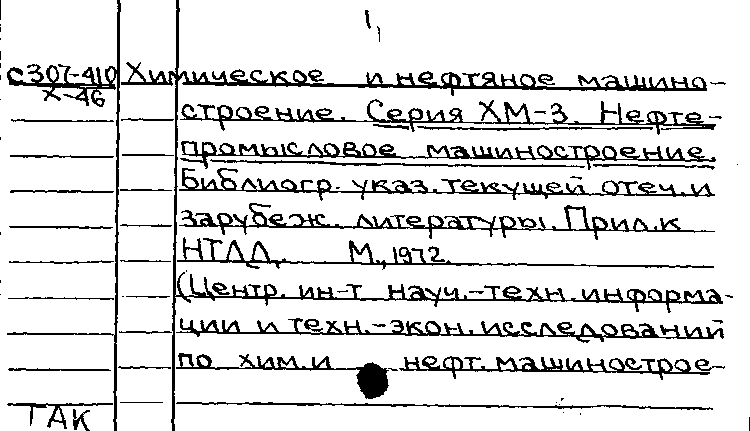 1,
с307-410 Химическое и нефтяное машино-
Х-46
строение. Серия ХМ-3. Нефте-
промысловое машиностроение.
Библиогр. указ. текущей отеч. и
зарубеж. литературы. Прил. к
НТЛД. М., 1972.
(Центр. ин-т науч.-техн. информа-
ции и техн.-экон. исследований
по хим. и нефт. машинострое-
ТАК